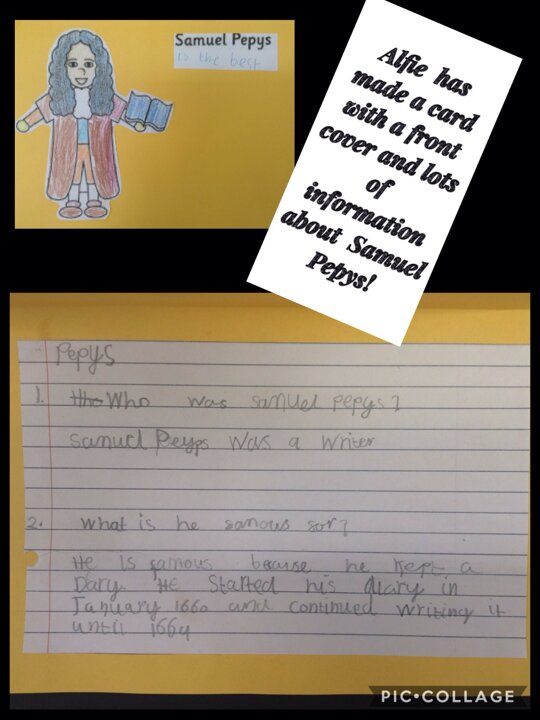 Samuel Pepys
is the best
Alfie has
made a card
with a front
cover and lots
of
information
about Samuel
Pepys!
Pepys
1. Who was samuel pepys?
samuel Peyps was a writer
2. what is he samous sor?
He is famous because he kept a
Dary. He Started his diary in
January 1660 and continued writing it
until 1664
PIC•COLLAGE